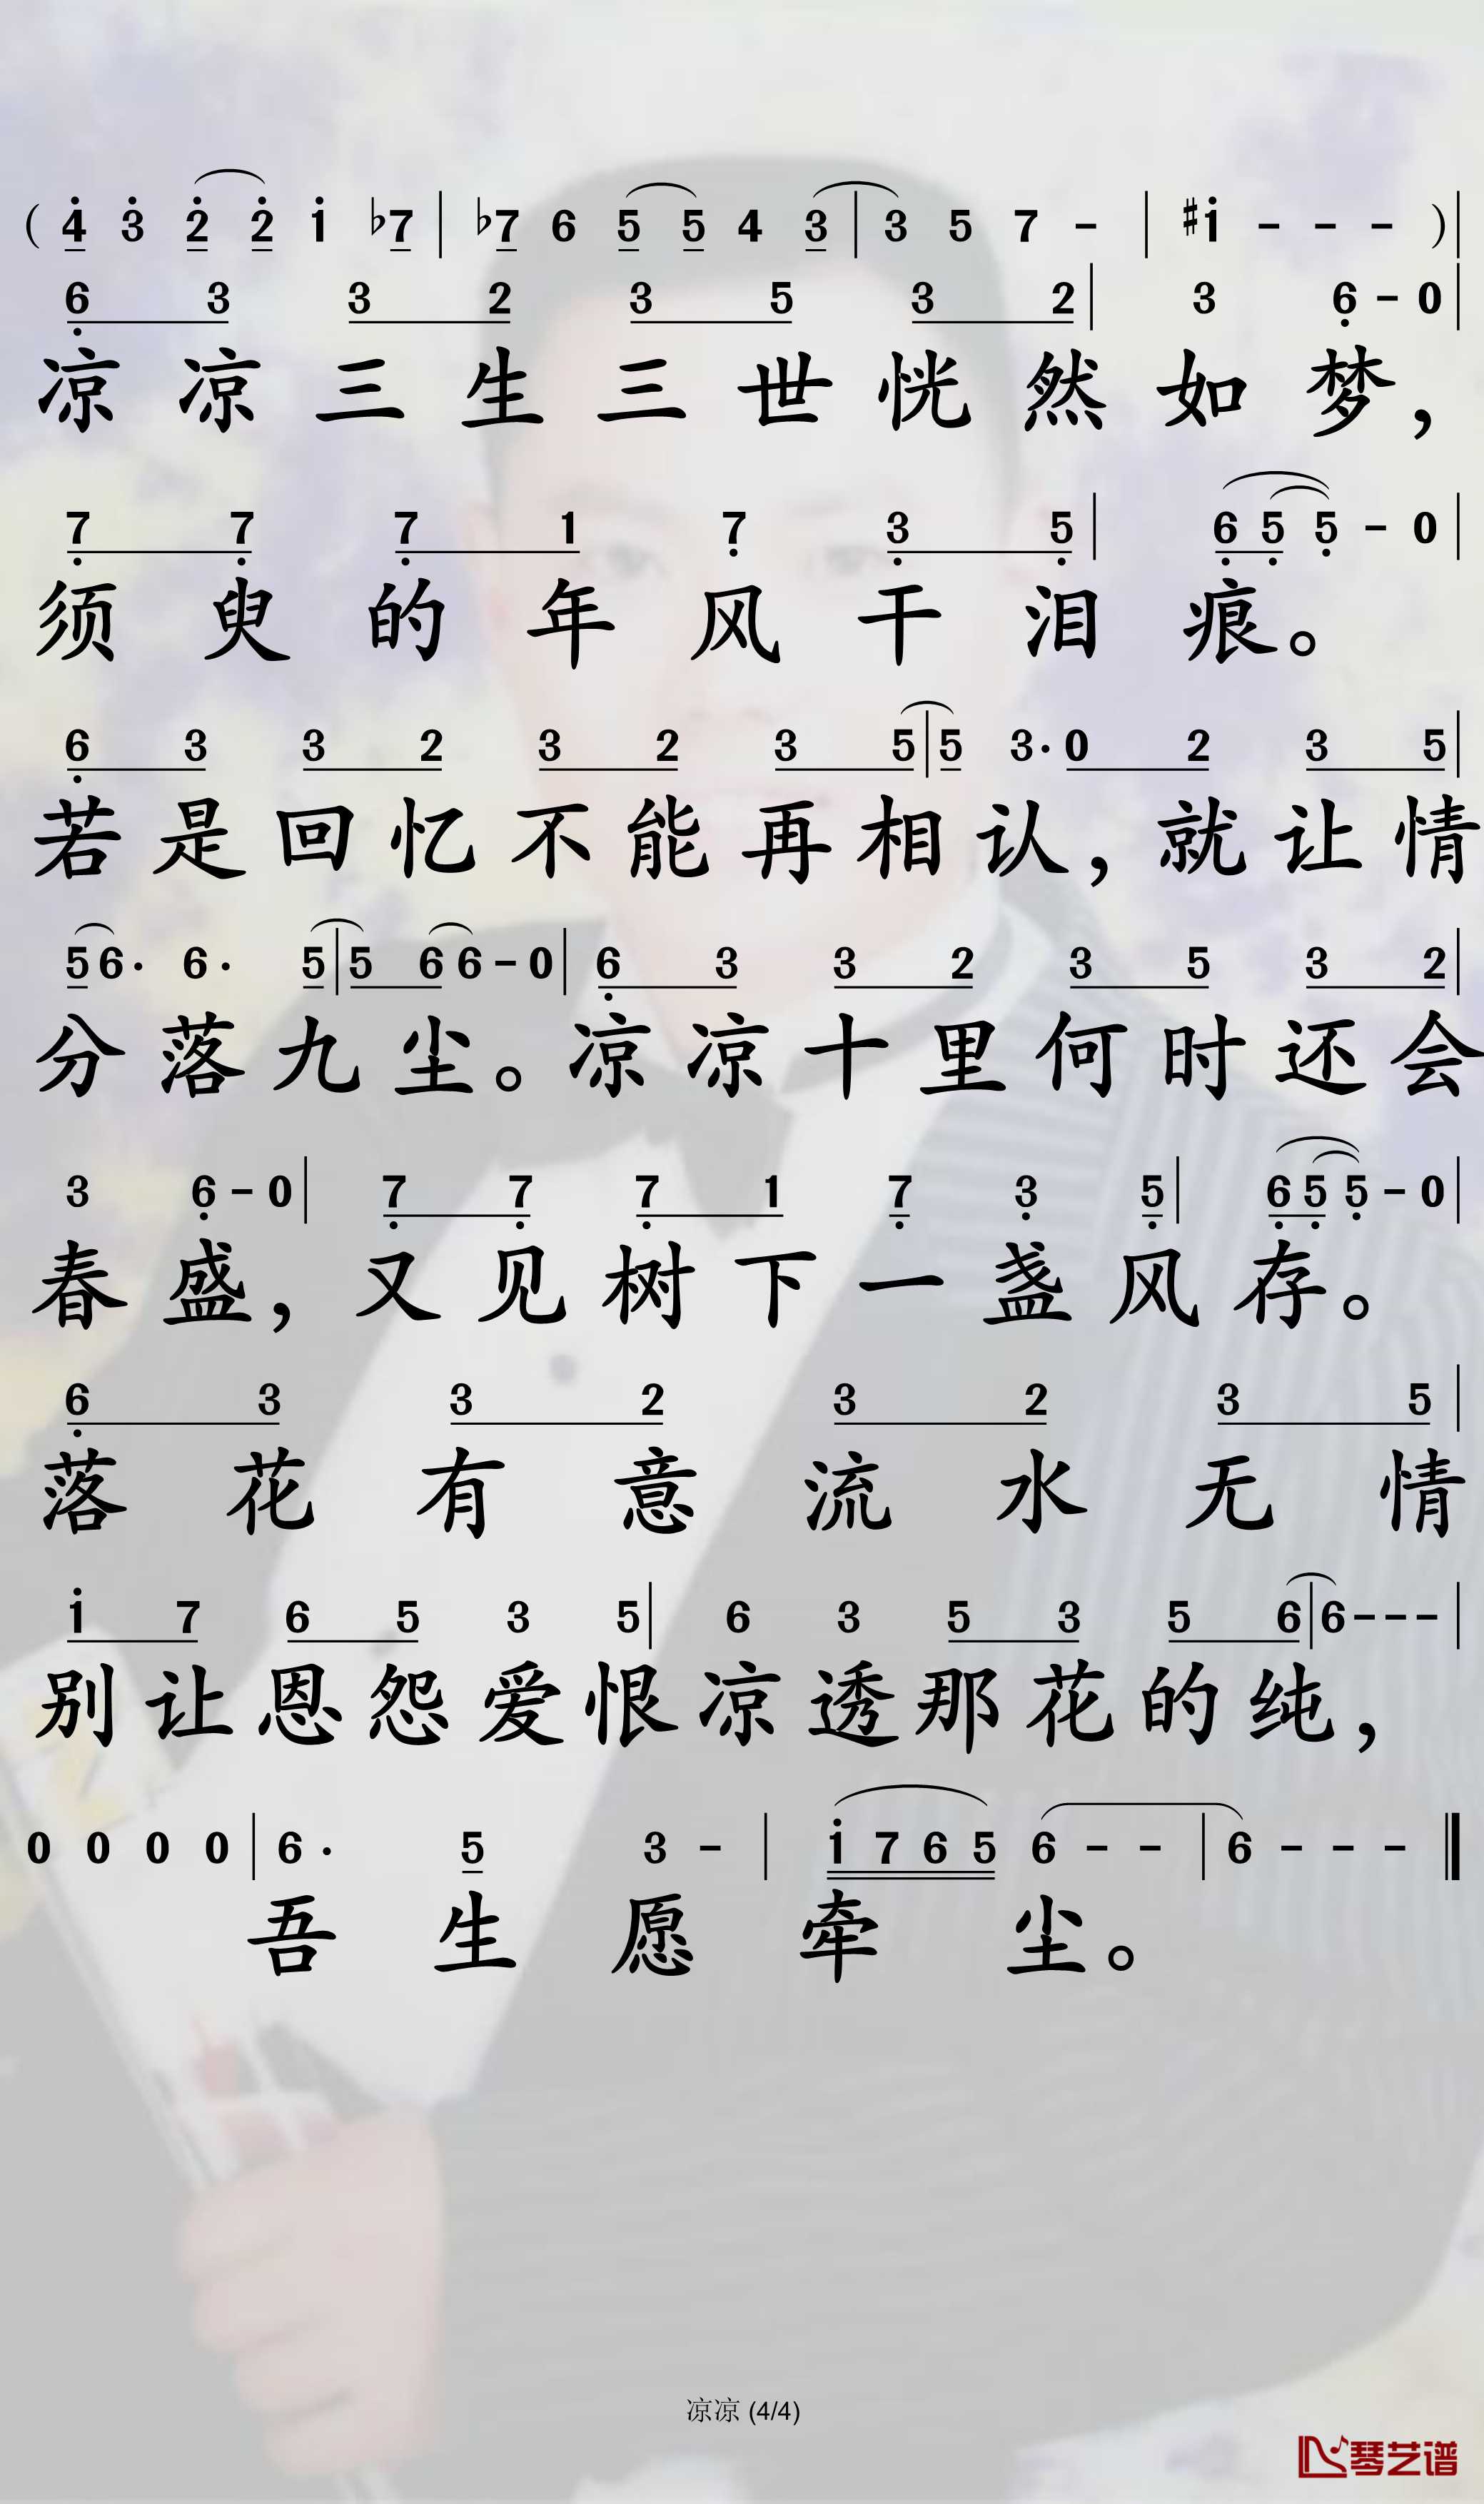 ( 4̇ 3̇ 2̇ 2̇ 1̇ ♭7 | ♭7 6 5 5 4 3 | 3 5 7 - | ♯1̇ - - - ) |
6̣ 3 3 2 3 5 3 2 | 3 6̣ - 0 |
凉凉三生三世恍然如梦，
7̣ 7̣ 7̣ 1 7̣ 3̣ 5̣ | 6̣ 5̣ 5̣ - 0 |
须臾的年风干泪痕。
6̣ 3 3 2 3 2 3 5 | 5 3· 0 2 3 5 |
若是回忆不能再相认，就让情
5 6· 6· 5 | 5 6 6 - 0 | 6̣ 3 3 2 3 5 3 2 |
分落九尘。凉凉十里何时还会
3 6̣ - 0 | 7̣ 7̣ 7̣ 1 7̣ 3̣ 5̣ | 6̣ 5̣ 5̣ - 0 |
春盛，又见树下一盏风存。
6̣ 3 3 2 3 2 3 5 |
落花有意流水无情
1̇ 7 6 5 3 5 | 6 3 5 3 5 6 | 6 - - - |
别让恩怨爱恨凉透那花的纯，
0 0 0 0 | 6· 5 3 - | 1̇ 7 6 5 6 - - | 6 - - - ‖
吾生愿牵尘。
凉凉 (4/4)
琴艺谱